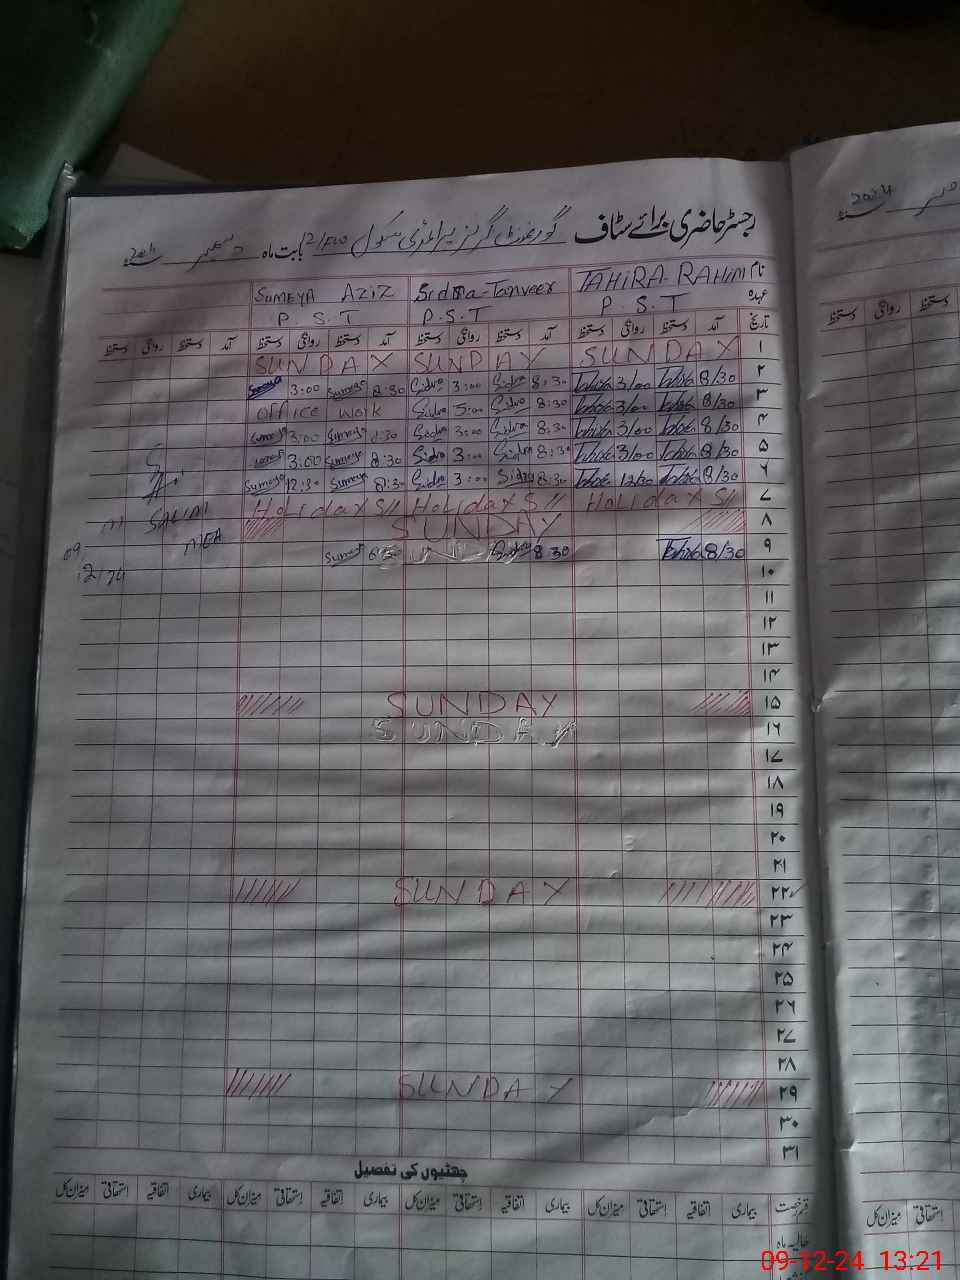 رجسٹر حاضری برائے سٹاف گورنمنٹ گرلز پرائمری سکول بابت ماہ دسمبر
نام TAHIRA-RAHIM Sidra-Tanveer SUMEYA AZIZ
عہدہ P.S.T P.S.T P.S.T
تاریخ آمد دستخط روانگی دستخط آمد دستخط روانگی دستخط آمد دستخط روانگی دستخط آمد دستخط روانگی دستخط
۱ SUNDAY SUNDAY SUNDAY
۲ 8/30 3/00 8:30 Sidra 3:00 Sidra 8:30 Sumeya 3:00 Sumeya
۳ 8/30 3/00 8:30 Sidra 3:00 Sidra office work
۴ 8/30 3/00 8:30 Sidra 3:00 Sidra 8:30 Sumeya 3:00 Sumeya
۵ 8/30 3/00 8:30 Sidra 3:00 Sidra 8:30 Sumeya 3:00 Sumeya
۶ 8/30 12/30 8:30 Sidra 3:00 Sidra 8:30 Sumeya 12:30 Sumeya
۷ HoLidax S// HoLidax S// HoLidax S//
۸ SUNDAY
۹ 8/30 8 30 Sidra Sumeya
SALIM
MEA
09
12/24
۱۰
۱۱
۱۲
۱۳
۱۴
۱۵ SUNDAY
۱۶ SUNDAY
۱۷
۱۸
۱۹
۲۰
۲۱
۲۲ SUNDAY
۲۳
۲۴
۲۵
۲۶
۲۷
۲۸
۲۹ SUNDAY
۳۰
۳۱
چھٹیوں کی تفصیل
قسم رخصت بیماری اتفاقیہ استحقاقی میزان کل بیماری اتفاقیہ استحقاقی میزان کل بیماری اتفاقیہ استحقاقی میزان کل
حالیہ ماہ
2024
دستخط روانگی دستخط
استحقاقی میزان کل
09-12-24 13:21